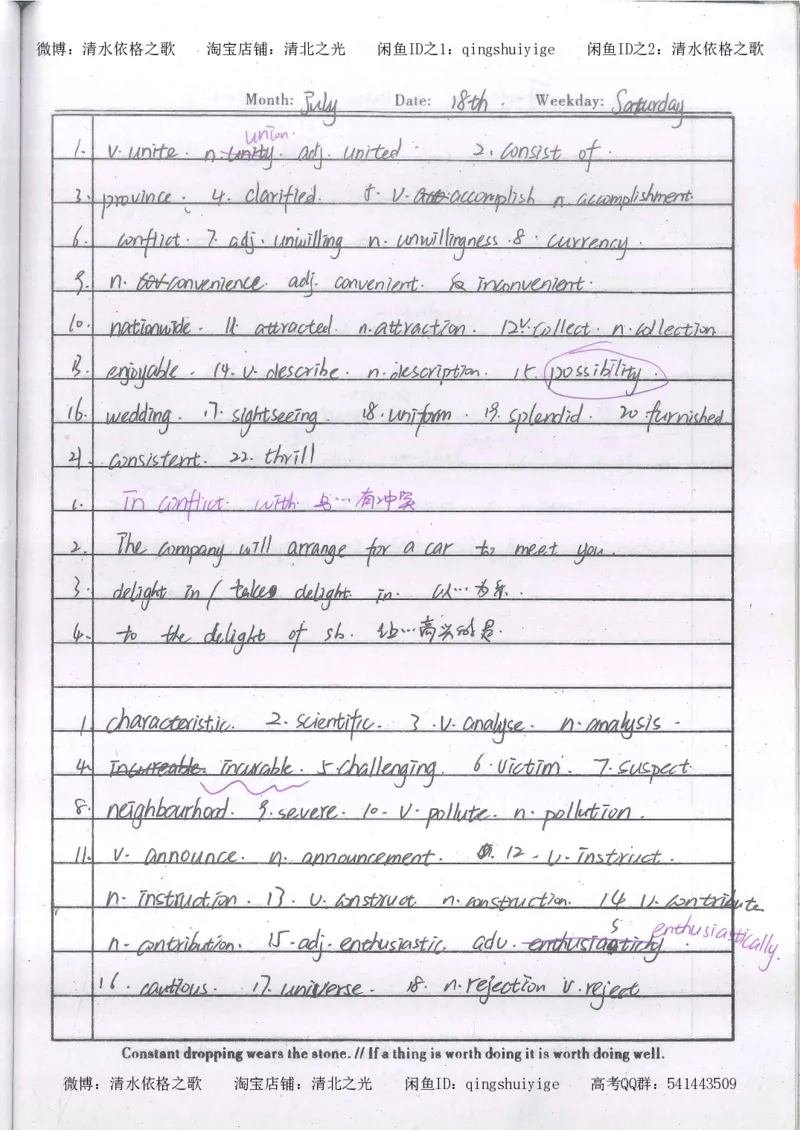 微博：清水依格之歌 淘宝店铺：清北之光 闲鱼ID之1：qingshuiyige 闲鱼ID之2：清水依格之歌
Month: July Date: 18th. Weekday: Saturday
union.
1. v. unite. n. unity. adj. united. 2. consist of.
3. province. 4. clarified. 5. v. accomplish n. accomplishment.
6. conflict. 7. adj. unwilling n. unwillingness. 8. currency.
9. n. convenience. adj. convenient. 反 inconvenient.
10. nationwide. 11. attracted. n. attraction. 12. v. collect. n. collection
13. enjoyable. 14. v. describe. n. description. 15. possibility.
16. wedding. 17. sightseeing. 18. uniform. 19. splendid. 20 furnished.
21. consistent. 22. thrill
1. in conflict with 与…有冲突
2. The company will arrange for a car to meet you.
3. delight in / take delight in. 以…为乐.
4. to the delight of sb. 让…高兴的是.
1. characteristic. 2. scientific. 3. v. analyse. n. analysis.
4. incureable. incurable. 5. challenging. 6. victim. 7. suspect.
8. neighbourhood. 9. severe. 10. v. pollute. n. pollution.
11. v. announce. n. announcement. 12. v. instruct.
n. instruction. 13. v. construct n. construction. 14 v. contribute
n. contribution. 15. adj. enthusiastic. adv. enthusiastically.
16. cautious. 17. universe. 18. n. rejection v. reject
Constant dropping wears the stone. // If a thing is worth doing it is worth doing well.
微博：清水依格之歌 淘宝店铺：清北之光 闲鱼ID：qingshuiyige 高考QQ群：541443509